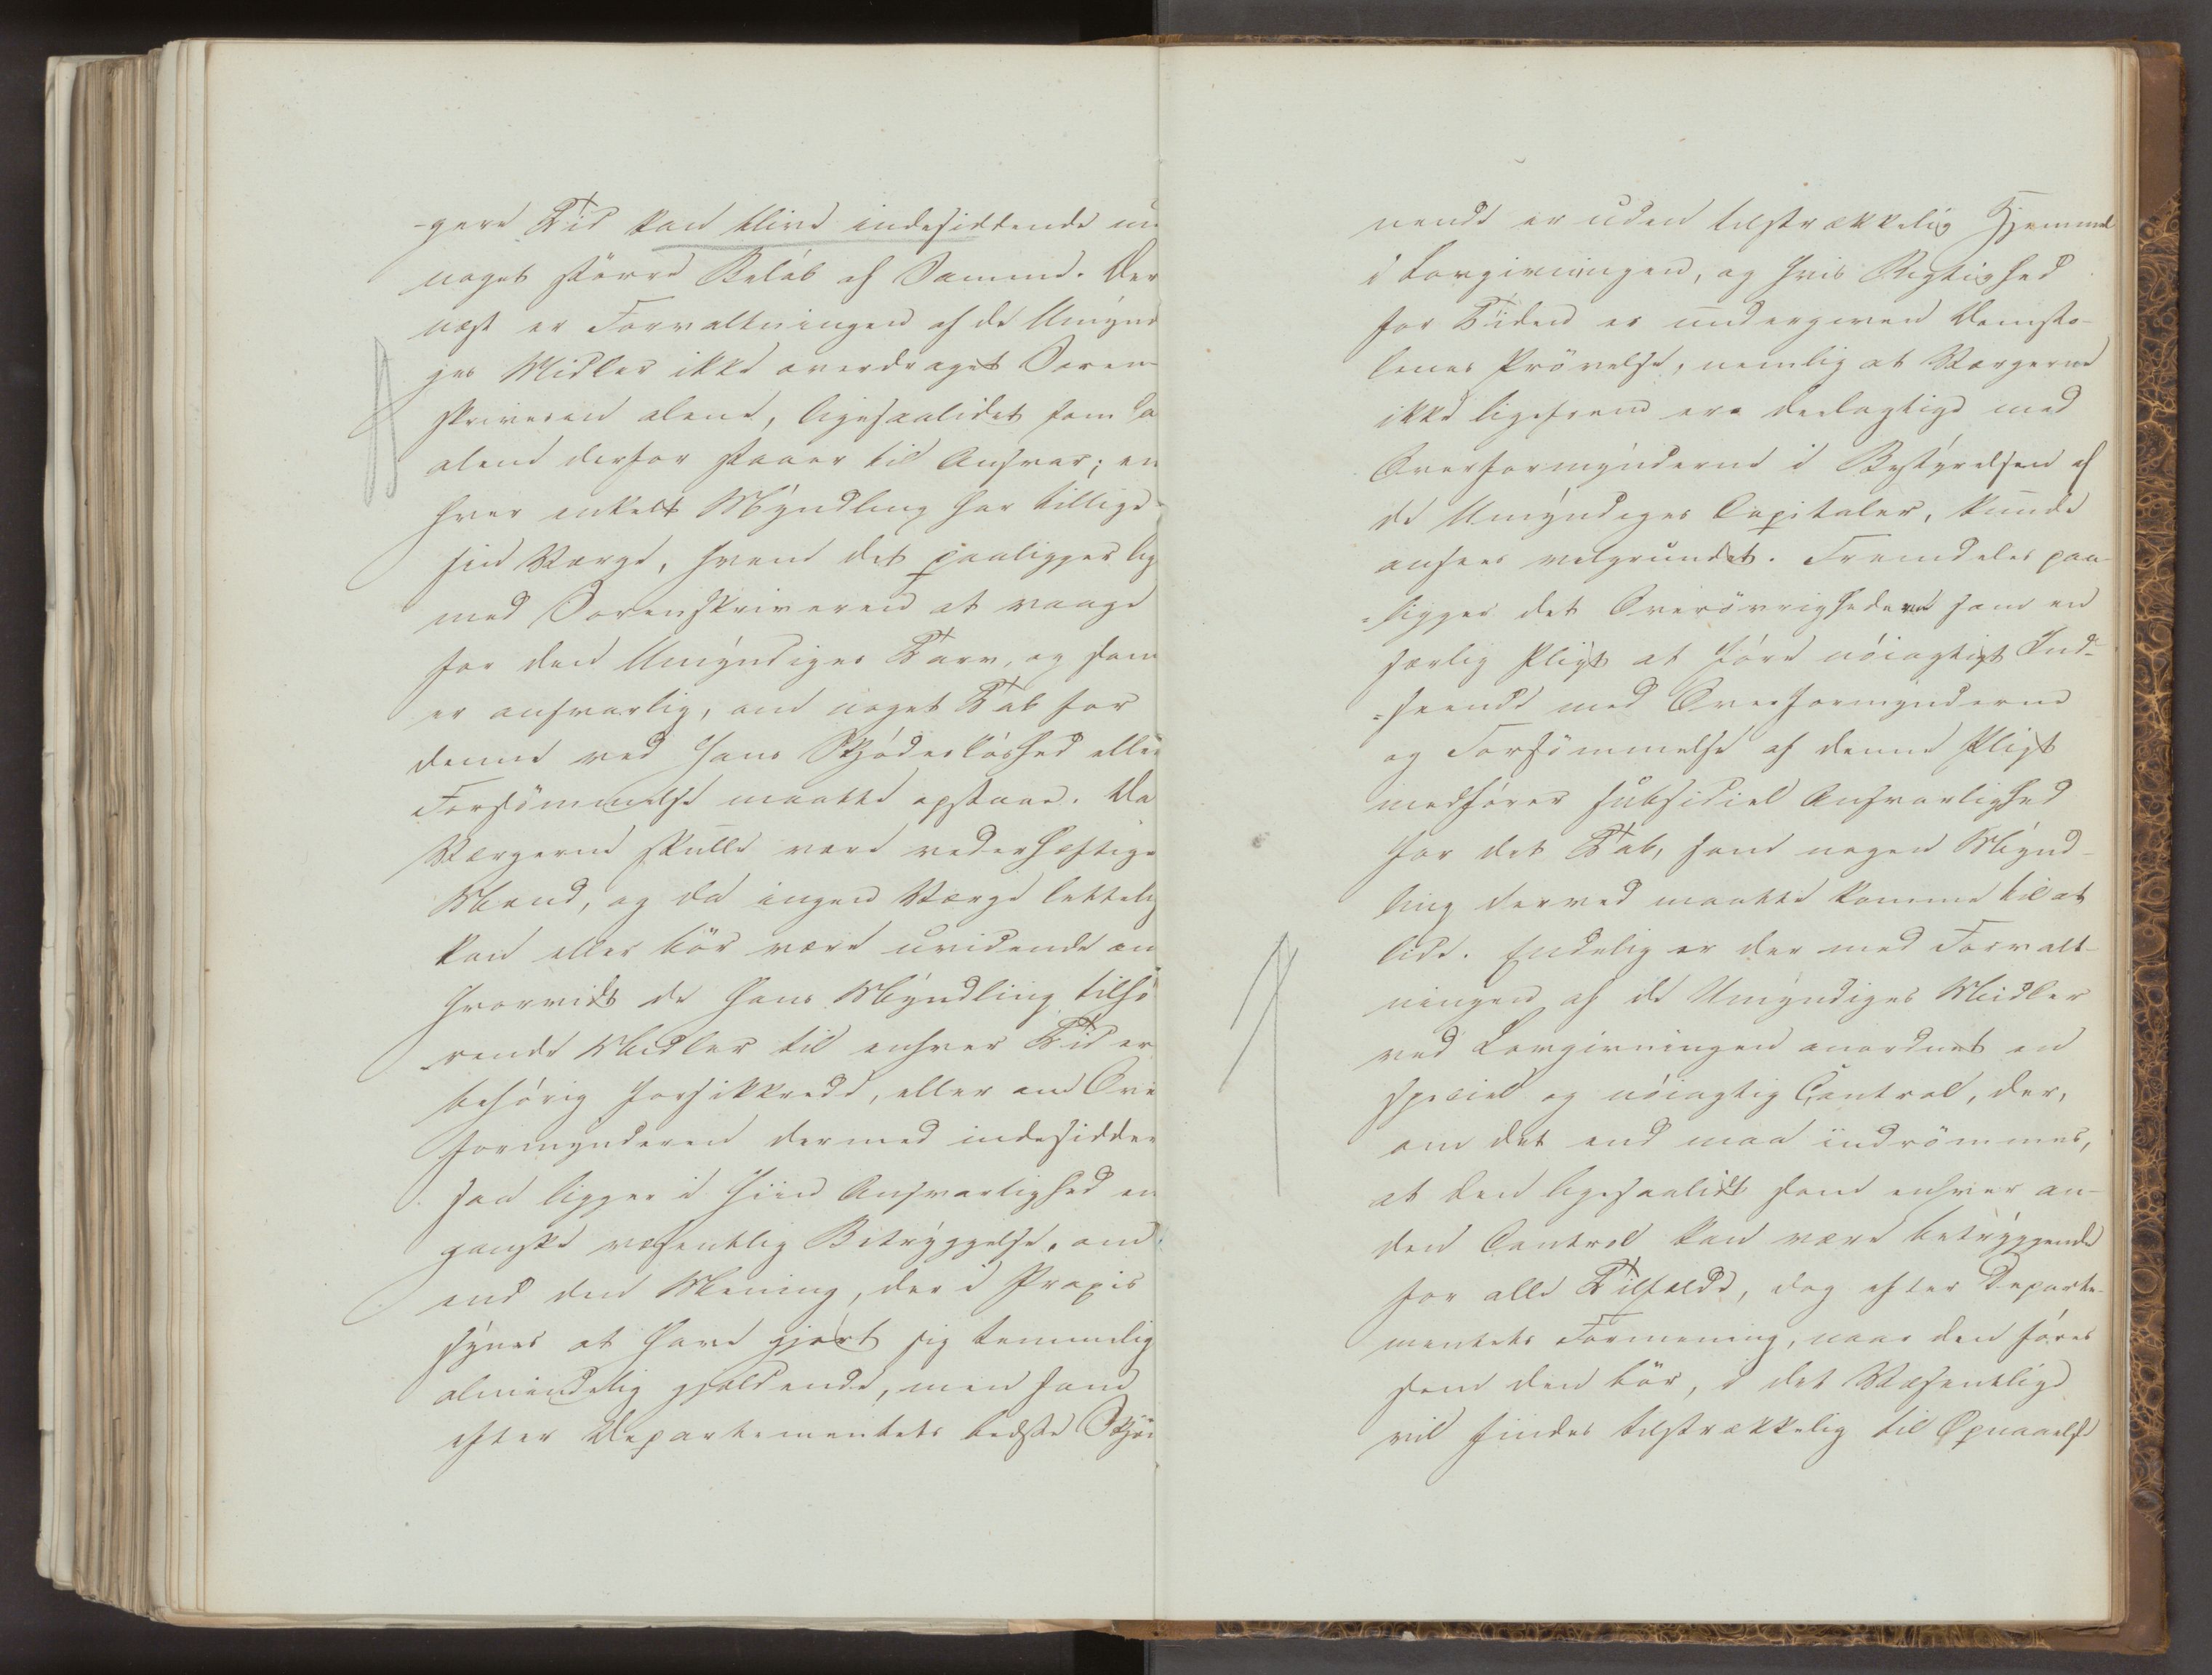 -gere Tid kan blive indesiddende m
noget större Beløb af Samme. Der
næst er Forvaltningen af de Umynd
ges Midler ikke overdraget Soren-
skriveren alene, ligesaalidet som ha
alene derfor staaer til Ansvar; en
hver enkelt Myndling har tillige
sin Værge, hvem det paaligger lig
med Sorenskriveren at vaage
for den Umyndiges Tarv, og som
er ansvarlig, om noget Tab for
denne ved hans Skjødesløshed eller
Forsömmelse maatte opstaae. Da
Værgerne skulle være vederhæftige
Mænd, og da ingen Værge lettelig
kan eller bör være uvidende om
hvorvidt de hans Myndling tilhö
rende Midler til enhver Tid er
behörig forsikkrede, eller om Over
formynderen dermed indesidder
saa ligger i hiin Ansvarlighed en
ganske væsentlig Betryggelse, om
end den Mening, der i Praxis
synes at have gjort sig temmelig
almindelig gjældende, men som
efter Departementets bedste Skjön
nende er uden tilstrækkelig Hjemmel
i Lovgivningen, og hvis Rigtighed
for Tiden er undergiven Domsto-
lenes Prövelse, nemlig at Værgerne
ikke ligefrem ere deelagtige med
Overformynderne i Bestyrelsen af
de Umyndiges Capitaler, kunde
ansees velgrundet. Fremdeles paa-
-ligger det Överövrighederne som en
særlig Pligt at före nöiagtigt Ind-
-seende med Overformynderne
og Forsömmelse af denne Pligt
medförer subsidiel Ansvarlighed
for det Tab, som nogen Mynd-
ling derved maatte komme til at
lide. Endelig er der med Forvalt-
ningen af de Umyndiges Midler
ved Lovgivningen anordnet en
speciel og nöiagtig Control, der,
om det end maa indrömmes,
at den ligesaalidt som enhver an-
den Control kan være betryggende
for alle Tilfælde, dog efter Departe-
mentets Formening, naar den föres
som den bör, i det Væsentlige
vil findes tilstrækkelig til Opnaaelse